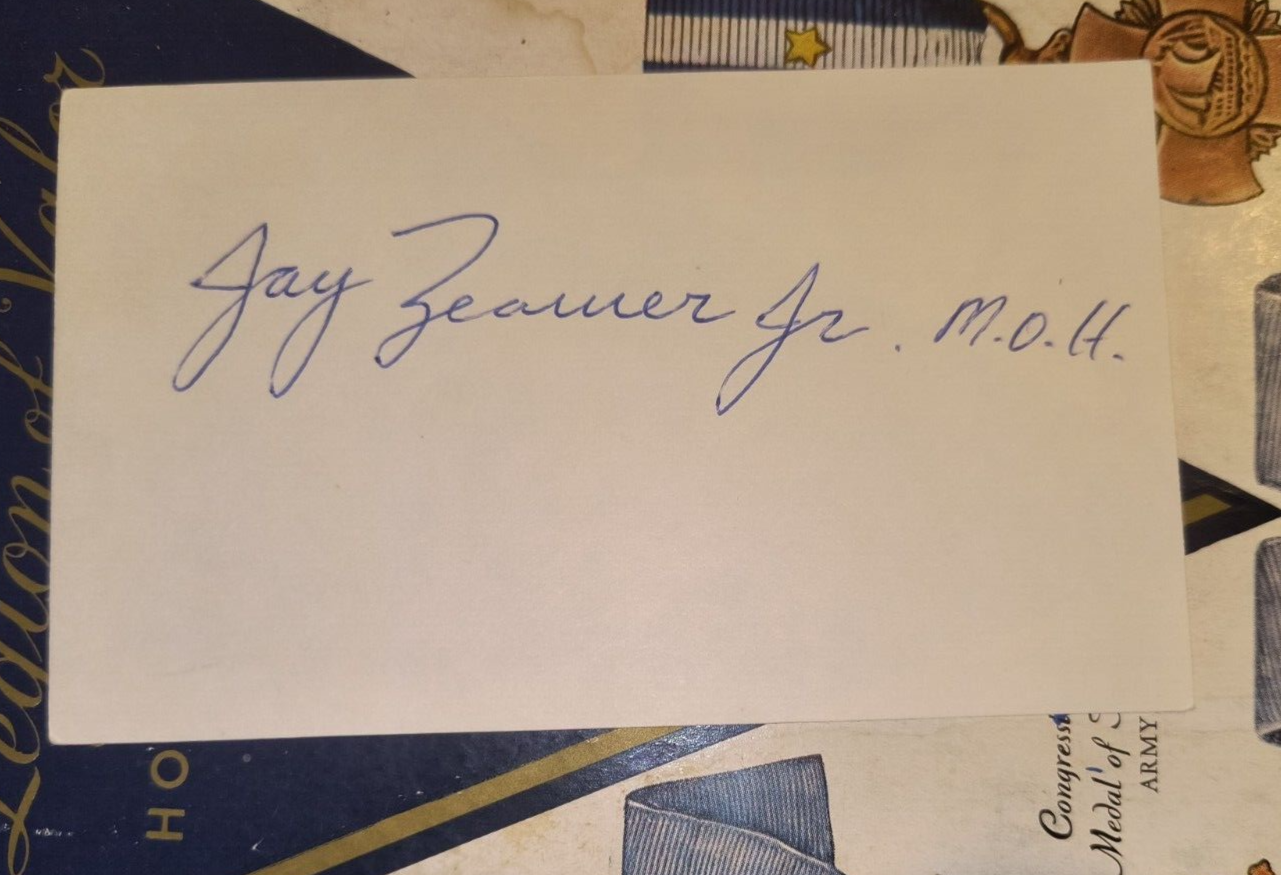 Jay Zeamer Jr. M.O.H.
Legion of Valor
HO
Congress
Medal of
ARMY